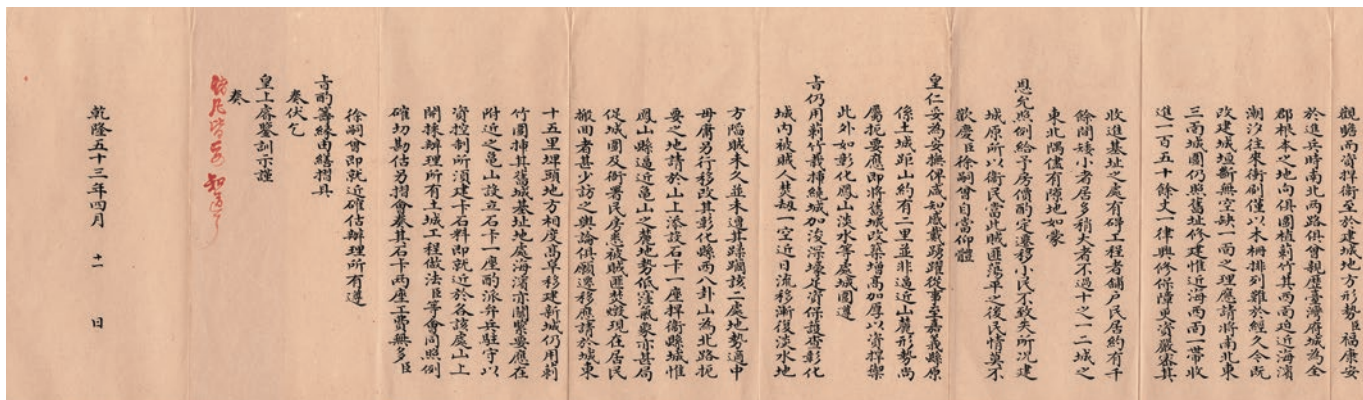 觀瞻而資捍衛至於建城地方形勢臣福康安
於進兵時南北兩路俱會親歷臺灣府城為全
郡根本之地向俱圍植莿竹其西面迫近海濱
潮汐往來衝刷僅以木柵排列難於經久今既
改建城垣斷無空缺一面之理應請將南北東
三面城圍仍照舊址修建惟近海西面一帶收
進一百五十餘丈一律興修保障更資嚴密其
收進基址之處有碍工程者鋪戶民居約有千
餘間矮小者居多稍大者不過十之一二城之
東北隅儘有隙地如蒙
恩允照例給予房價酌定遷移小民不致失所况建
城原所以衛民當此賊匪蕩平之後民情莫不
歡慶臣徐嗣曾自當仰體
皇仁妥為安撫俾咸知感戴踴躍從事至嘉義縣原
係土城距山約有二里並非逼近山麓形勢尚
屬扼要應即將舊城改築增高加厚以資捍禦
此外如彰化鳳山淡水等處城圍遵
旨仍用莿竹栽插繞城加浚深壕足資保護查彰化
城内被賊人焚刼一空近日流移漸復淡水地
方陷賊未久並未遭其蹂躪該二處地勢適中
毋庸另行移改其彰化縣西八卦山為北路扼
要之地請於山上添設石卡一座捍衛縣城惟
鳳山縣逼近龜山之麓地勢低窪氣象亦甚局
促城圍及衙署民房悉被賊匪焚燬現在居民
搬回者甚少訪之輿論俱願遷移應請於城東
十五里埤頭地方相度高阜移建新城仍用刺
竹圍插其舊城基址地處海濱亦關緊要應在
附近之龜山設立石卡一座酌派弁兵駐守以
資控制所須建卡石料即就近於各該處山上
開採辦理所有土城工程做法臣等會同照例
確切勘估另摺會奏其石卡兩座工費無多臣
徐嗣曾即就近確估辦理所有遵
旨酌籌緣由繕摺具
奏伏乞
皇上睿鑒訓示謹
奏
乾隆五十三年四月 十一 日